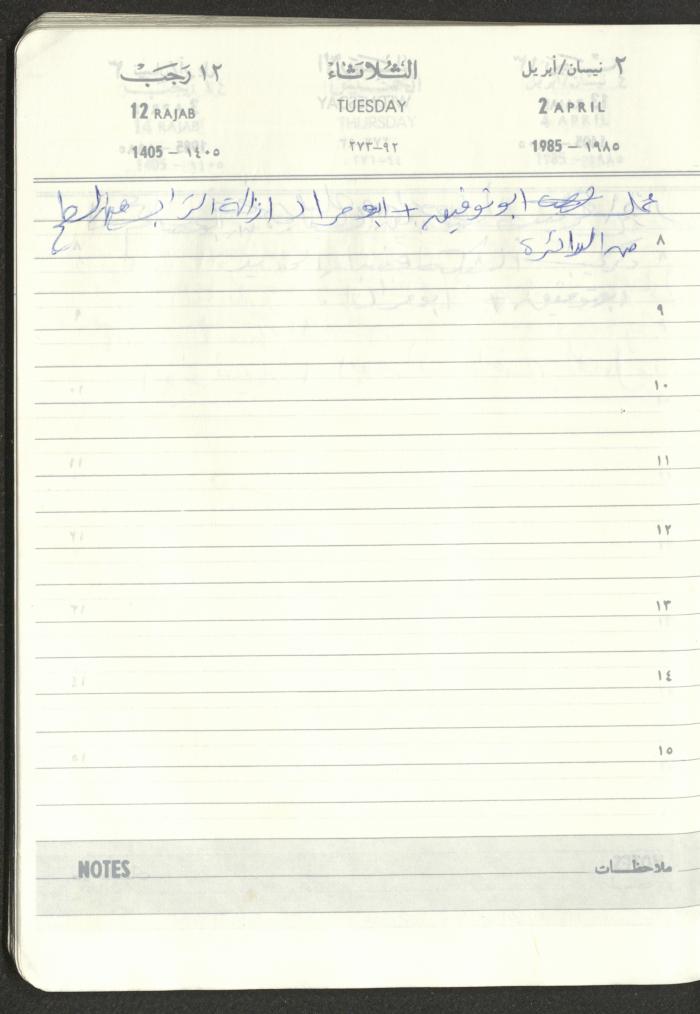 ٢ نيسان/أبريل الثلاثاء ١٢ رجب
2 APRIL TUESDAY 12 RAJAB
1985 – ١٩٨٥ ٩٢–٢٧٣ 1405 – ١٤٠٥
عمل ابو توفيق + ابو مراد ازالة التراب عن السطح
٨ من الدائرة
٩
١٠
١١
١٢
١٣
١٤
١٥
ملاحظات NOTES